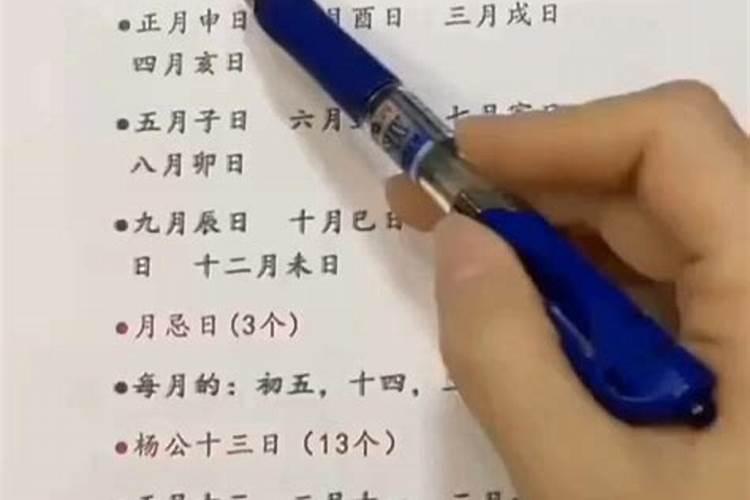 正月申日 月酉日 三月戌日
四月亥日
五月子日 六月 七月寅日
八月卯日
九月辰日 十月巳日
日 十二月未日
月忌日(3个)
每月的：初五，十四，
杨公十三日（13个）